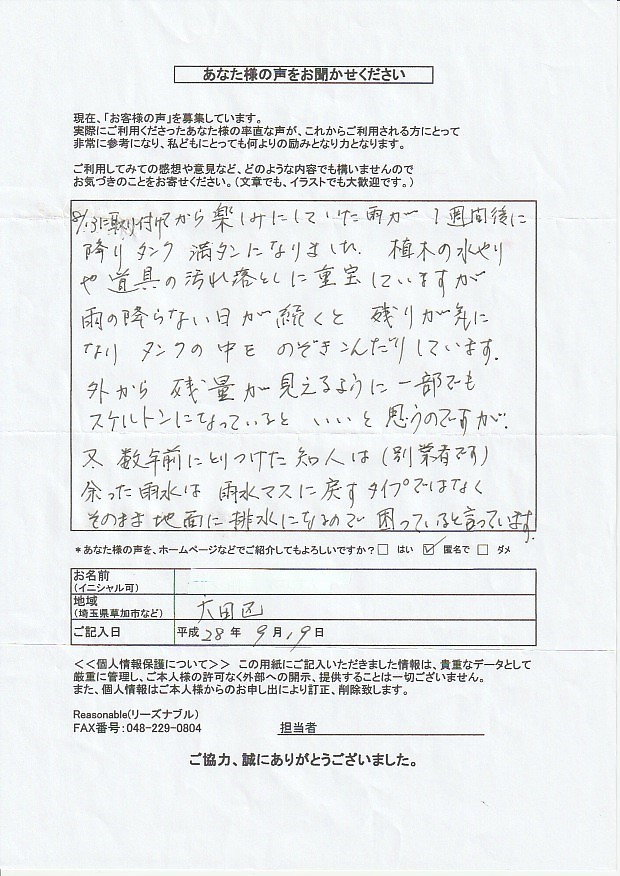 あなた様の声をお聞かせください
現在、「お客様の声」を募集しています。
実際にご利用くださったあなた様の率直な声が、これからご利用される方にとって
非常に参考になり、私どもにとっても何よりの励みとなり力となります。
ご利用してみての感想や意見など、どのような内容でも構いませんので
お気づきのことをお寄せください。(文章でも、イラストでも大歓迎です。)
8/13に取り付けてから楽しみにしていた雨が 1週間後に
降り タンク 満タンになりました。 植木の水やり
や 道具の汚れ落としに重宝していますが
雨の降らない日が続くと 残りが気に
なり タンクの中を のぞきこんだりしています。
外から 残量が見えるように一部でも
スケルトンになっていると いいと思うのですが。
又 数年前にとりつけた知人は(別業者です)
余った雨水は 雨水マスに戻すタイプではなく
そのまま地面に排水になるので 困っていると言っています。
*あなた様の声を、ホームページなどでご紹介してもよろしいですか?□ はい ☑ 匿名で □ ダメ
お名前
(イニシャル可)
地域
(埼玉県草加市など) 大田区
ご記入日 平成 28 年 9 月 19 日
<<個人情報保護について>> この用紙にご記入いただきました情報は、貴重なデータとして
厳重に管理し、ご本人様の許可なく外部への開示、提供することは一切ございません。
また、個人情報はご本人様からのお申し出により訂正、削除致します。
Reasonable(リーズナブル)
FAX番号:048-229-0804 担当者
ご協力、誠にありがとうございました。